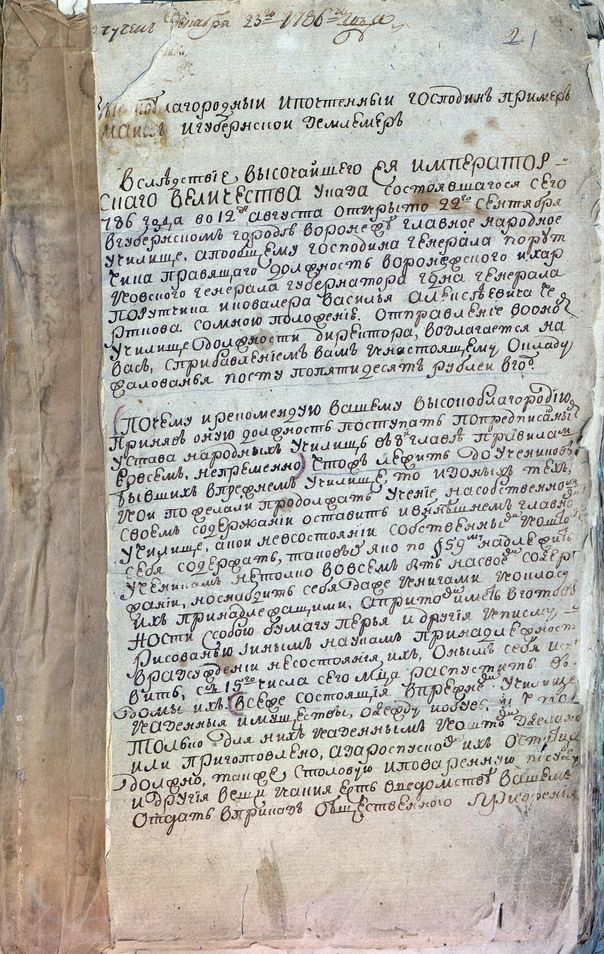 лученъ декабря 23го 1786го года
21
высокоблагородный и почтенный господинъ примеръ
маиоръ и губернской землемеръ
Вследствіе высочайшего ея император-
скаго величества указа состоявшагося сего
786 года во 12 де августа открыто 22го сентября
в губернскомъ городѣ воронежѣ главное народное
училище, а по общему господина генерала порут
чика правящаго должность воронежского и хар
ковского генерала губернатора гдна генерала
порутчика и кавалера василья алексѣевича че
рткова со мною положенію. отправленіе во оно
училище должности директора, возлагается на
васъ, с прибавленіемъ вамъ к настоящему окладу
жалованья по сту по пятидесятъ рублей в годъ
Почему и рекомендую вашему высокоблагородію
принявъ оную должность поступать по предписаны
устава народныхъ училищъ въ главѣ правилам
во всемъ, непременно) чтожъ лежитъ до учениковъ
бывшихъ в прежнемъ училище, то изоныхъ тех,
кои пожелали продолжать ученіе на собственном
своемъ содержаніи оставить в нынешнемъ главно
училище, а кои не в состояніи собственны кошто
себя содержать, таковые яко по § 59му надлежитъ
ученикамъ не толко во всемъ быть на своемъ содер
жаніи, но снабдить себя даже книгами к класу
ихъ принадлежащими, а притомъ иметь в готов
ности с собою бумагу перья и другія к писму
рисованью и инымъ наукамъ принадлежност
в разсужденіи несостоянія ихъ, онымъ себя
вить, съ 15го числа сего мца распустить въ
домы ихъ (все же состоящія в прежнемъ училище
казенныя имуществы, одежду и обувь, и
толко для нихъ казеннымъ коштомъ зделано
или приготовлено, а за роспускомъ ихъ
должно, также столовую и поваренную посуду
и другія вещи какія есть в ведомстве вашемъ
отдать в приказъ общественного призренья